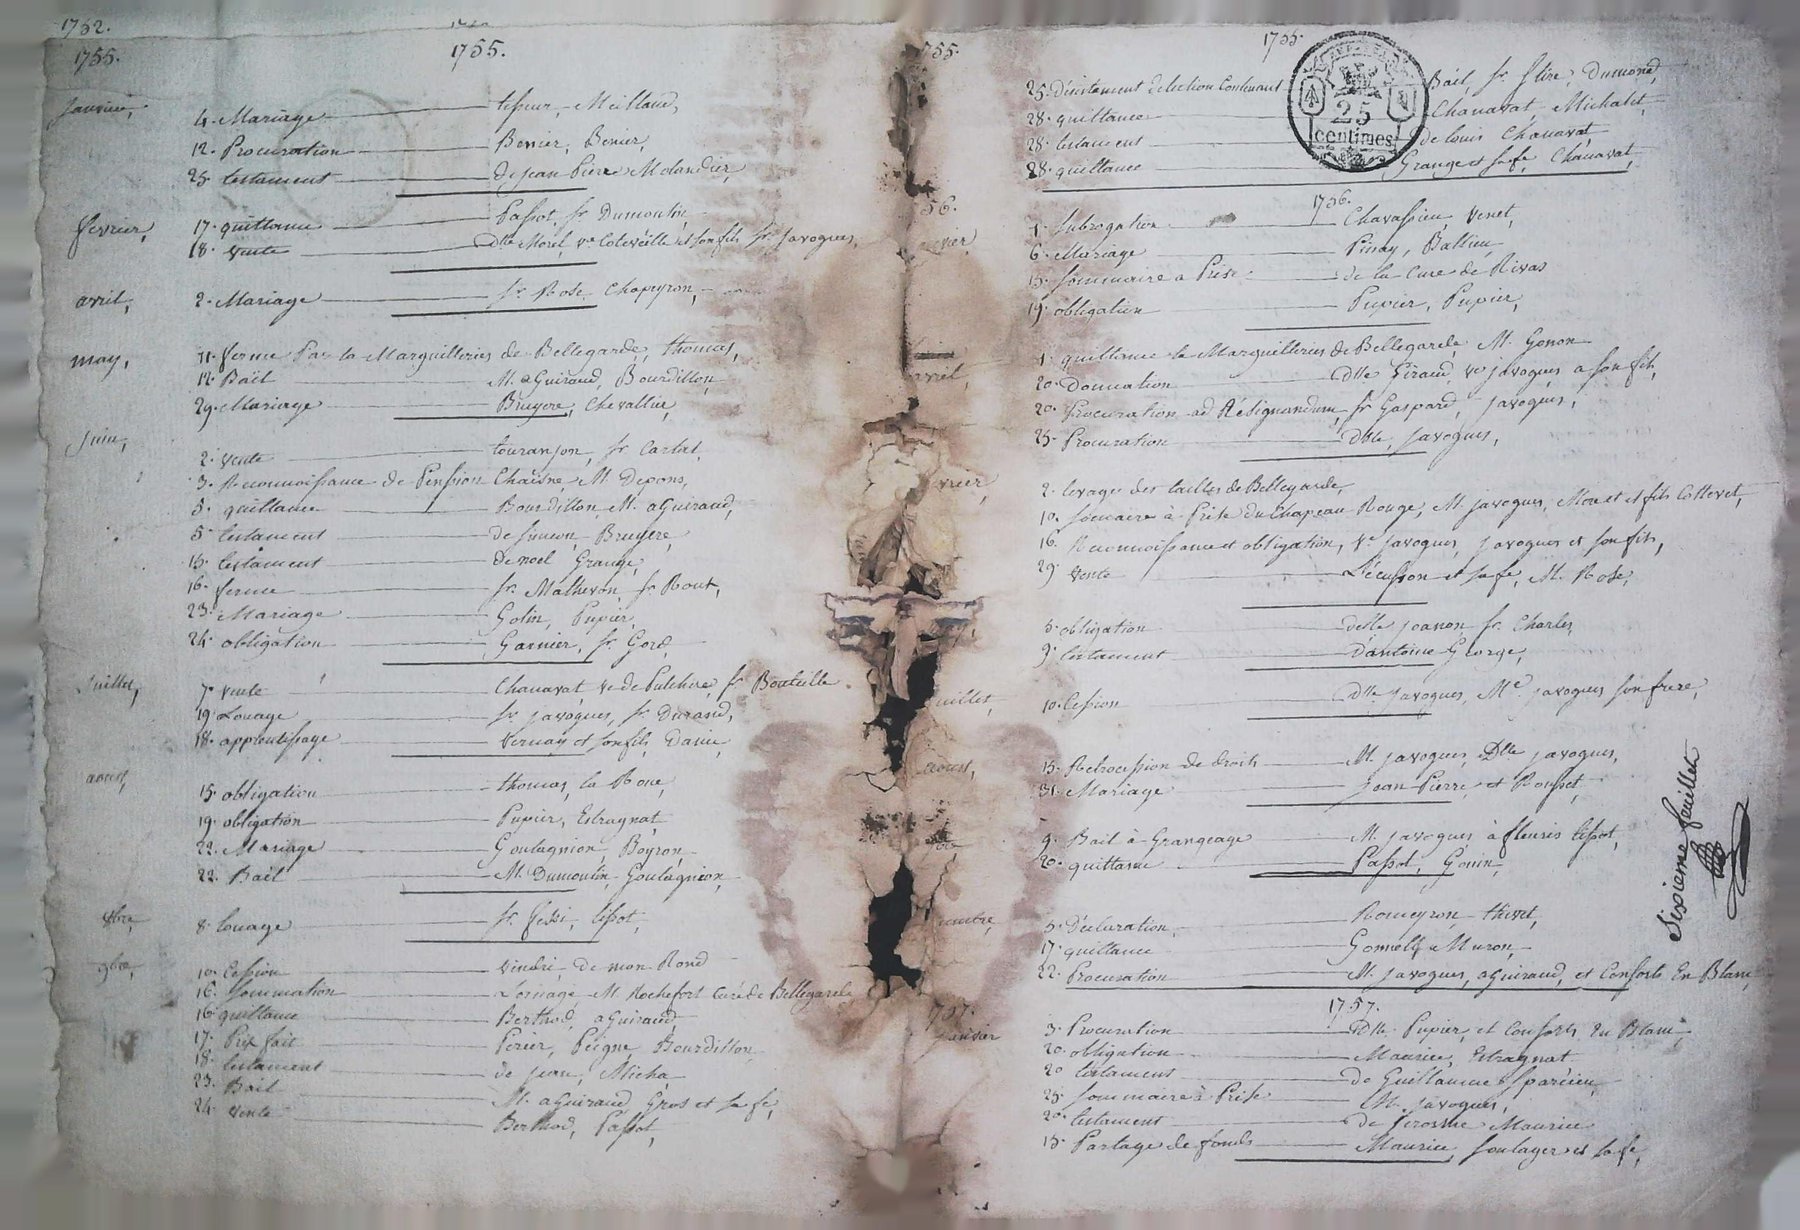 1752.
1755. 1755.
Janvier,
4. Mariage tisseur, Meilland,
12. Procuration Benier, Benier,
25. testament de jean Piere Molandier,
fevrier,
17. quittance Passot, Sr. Dumoulin,
18. vente Dlle Morel, ve Coteveille et son fils Sr. javogues,
avril,
2. Mariage Sr. Rose Chapeyron,
may,
11. ferme Par la Marguilleries de Bellegarde, thomas,
12. Bail M. aGuiraud, Bourdillon,
29. Mariage Bruyere, Chevallier,
Juin,
2. vente touranjon, Sr. Carlat,
3. Reconnoissance de Pension Chaisne, M. Depons,
5. quittance Bourdillon, M. aGuiraud,
5. testament de simeon Bruyere,
15. testament De noel Grange,
16. ferme Sr. Mathevon, Sr Rout,
23. Mariage Golin, Pupier,
24. obligation Garnier, Sr. Gord,
Juillet,
7. vente Chanavat ve de Pulchire, Sr Bouteille
19. Louage Sr. javogues, Sr. Durand,
18. apprentissage Vernay et son fils,
aoust,
15. obligation thomas, la Roue,
19. obligation Pupier, Estragnat,
22. Mariage Goutagnion, Boyron,
22. Bail M. Dumoulin, Goutagnion,
8bre,
8. louage Sr. tissot,
9bre,
10. Cession de mon Rond
16. Sommation M. Rochefort Curé de Bellegarde,
16. quittance Berthod, aGuiraud,
17. Prix fait Perier, Peigne, Bourdillon
18. testament de jean, Micha
23. Bail M. aGuiraud, Gros et sa fe,
24. vente Berthod, Passot,
1755. 1755.
25. Désistement délection Contenant Bail, Sr. flire, Dumond,
28. quittance Chanavat, Michalet,
28. testament de louis Chanavat
28. quittance Grange et sa fe, Chanavat,
56. 1756.
1. Subrogation Chavassieu, Venet,
6. Mariage Pinay, Ballieu,
15. Sommaire a Prise de la Cure de Rivas
19. obligation Pupier, Pupier,
avril,
1. quittance la Marguilleries de Bellegarde, M. Gonon
20. Donnation Dlle Giraud, ve javogues a son fils,
20. Procuration ad Résignandum, Sr Gaspard, javogues,
25. Procuration Dlle, javogues,
2. levage des tailles de Bellegarde,
10. Sommaire à Prise du Chapeau Rouge, M. javogues, More et et fils Cottevet,
16. Reconnoissance et obligation, Ve javogues, javogues et son fils,
29. vente L'écusson et sa fe, M. Rose,
5. obligation delle joanon, Sr. Charles,
9. testament d'antoine George,
uillet,
10. Cession Dlle javogues, Me. javogues son frere,
aoust,
15. Retrocession de droits M. javogues, Dlle javogues,
31. Mariage Jean Pierre, et Rousset,
9. Bail à Grangeage M. javogues à fleuris tissot,
20. quittance Passot, Gouin,
5. Déclaration, Romeyron, thivet,
17. quittance Muron,
22. Procuration M. javogues, aGuiraud, et Consorts En Blanc,
1757. 1757.
janvier
3. Procuration Dlle Pupier, et Consorts En Blanc,
20. obligation Maurice, Estragnat
20 testament de Guillaume Sparcieu,
25. Sommaire à Prise M. javogues,
2 testament de Jerosme Maurice
15. Partage de fonds Maurice, Soulager et sa fe,
25
centimes
Sixieme feuillet